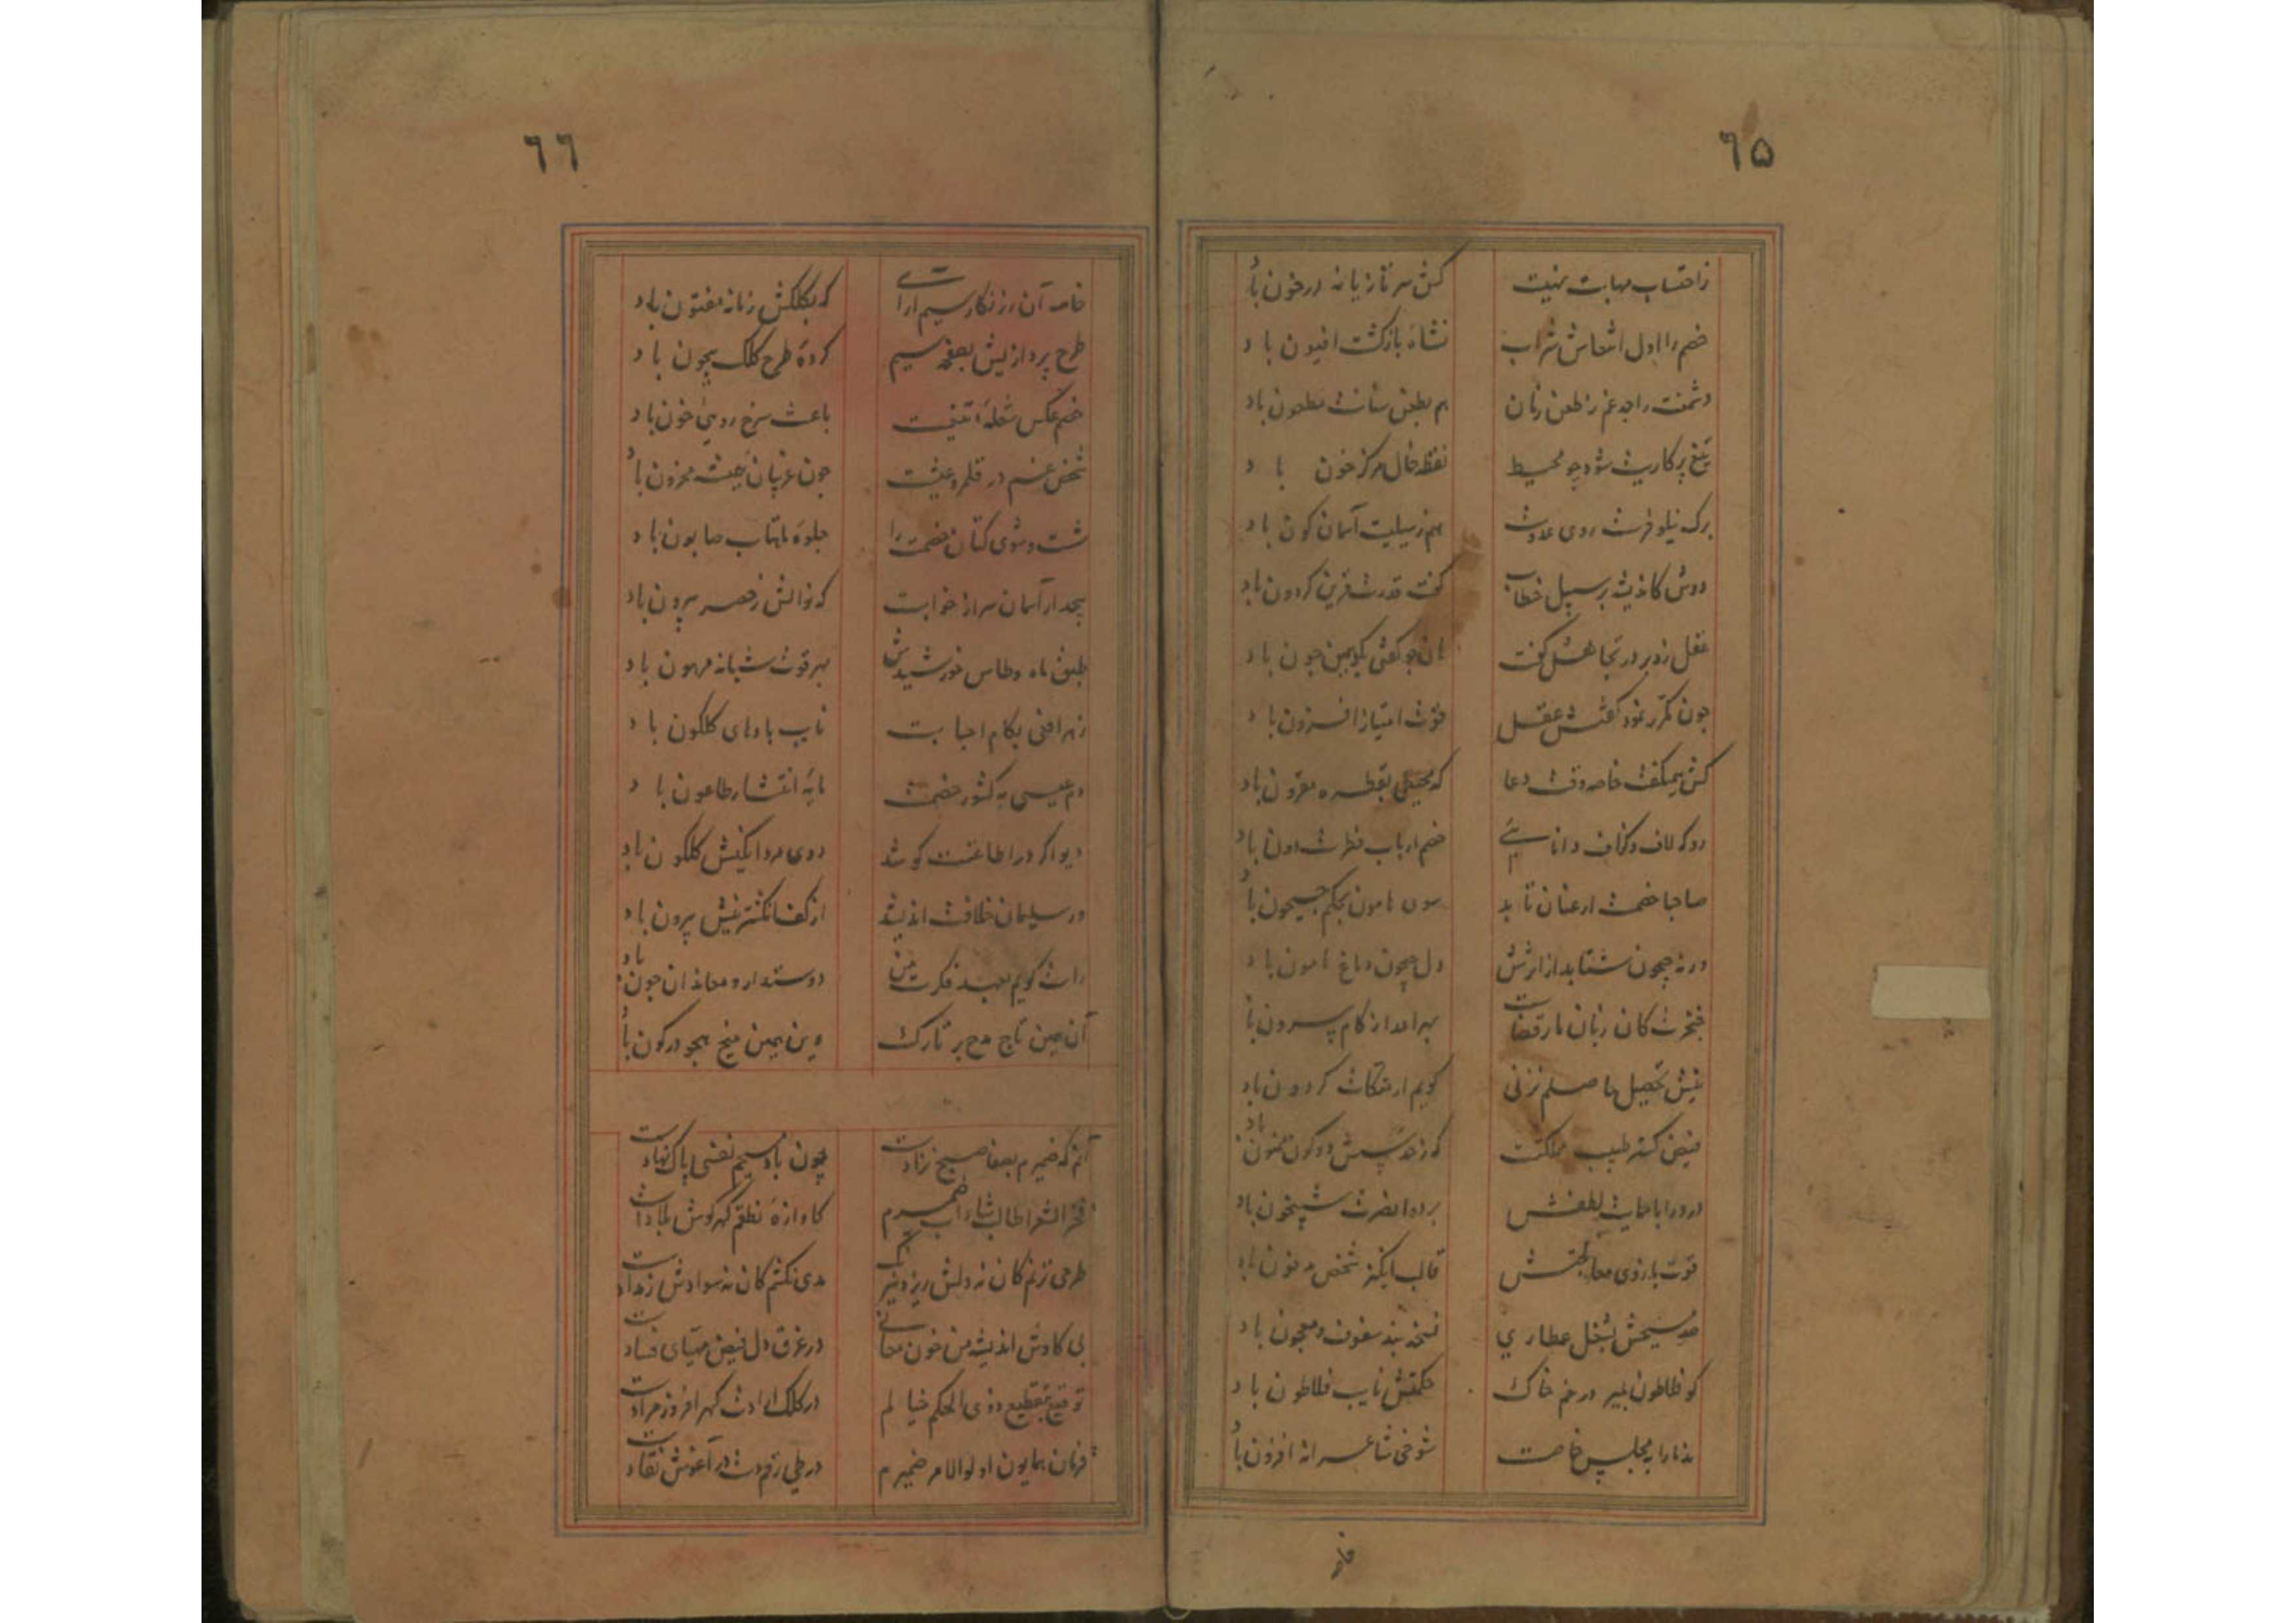 ٦۵
زاحتساب مهابت نهیت کش سر تازیانه در خون باد
خصم را اول انتعاش شراب نشاهٔ بازگشت افیون باد
دشمنت را جدغم ز طعن زنان هم بطعن سنانت مطعون باد
تیغ پرکاریت شود چو محیط نقطه خال مرکز خون باد
برک نیلوفرت روی عدوت هم ز سیلیت آسمان کون باد
دوش کاندیشه بر سبیل خطاب گفت قدرت قرین کردون باد
عقل زد بر در تجاهل گفت آن چو گفتی بگو همین چون باد
چون مکرر نمود گفتش عقل قوت امتیاز افزون باد
کش همیگفت خاصه وقت دعا که محیطی بقطره مقرون باد
رو که لاف و گزاف دانایی خصم ارباب فطرت دون باد
صاحبا خصمت ار عنان تابد سوی هامون بحکم جیحون باد
ورنه جیحون شتابد از اثرش دل جیحون داغ هامون باد
خنجرت کان زبان مار قضاست بهر اعدا ز کام بیرون باد
نیش تحصیل حاصلم نزنی گویم ار متکات کردون باد
فیض کستر طبیب ملکت که ز حدسش دو کون ممنون باد
درد را با حمایت لطفش بر دوا نصرت شبیخون باد
قوت بازوی معالجتش قالب انگیز شخص مدفون باد
صد مسیحش بشغل عطاری نسخه بند سفوف و معجون باد
کو فلاطون بمیر در خم خاک حکمتش نایب فلاطون باد
ندنا را به مجلس خاصت شوخی شاعرانه افزون باد
خامه
٦٦
خامه آن زرنگار سیم آراست که بکلکش زمانه مفتون باد
طرح پردازیش بصفحه سیم کردهٔ طرح کلک بیچون باد
خصم عکس شعلهٔ تیغت باعث سرخ رویی خون باد
شخص غم در قلمرو عیشت چون غریبان همیشه محزون باد
شست و شوی کتان خصمت را جلوهٔ ماهتاب صابون باد
بیجدار آسمان سرا خوابت که نوالش ز حصر بیرون باد
طبق ماه و طاس خورشیدش بهر قوت شبانه مرهون باد
زهر افعی بکام احبابت نایب بادهای گلگون باد
دم عیسی به کشور خصمت مایهٔ انتشار طاعون باد
دیو اگر در اطاعتت کوشد روی مردانگیش گلگون باد
ور سلیمان خلافت اندیشد از کف انگشترینش بیرون باد
راست گویم بعهد فکرت من دوستدار و معاندان چون باد
آن همین تاج مدح بر تارک وین همین میخ هجو در کون باد
آنم که ضمیرم بصفا صبح نژادست چون باد مسیحم نفسی پاک نهادست
فخر الشعرا طالب شاداب ضمیرم کاوازهٔ نطقم گهر گوش بلادست
طرحی نزنم کان نه دلش ریزد نیرنگ مدی نکشم کان نه سوادش ز مدادست
بی کاوش اندیشه من خون معانی در عرق دل فیض مهیای فسادست
توقیع بتقطیع ذوی الحکم خیالم در کلک ارادت گهر افروز مرادست
فرمان همایون اولوالامر ضمیرم در طی رقم دست در آغوش نفادست